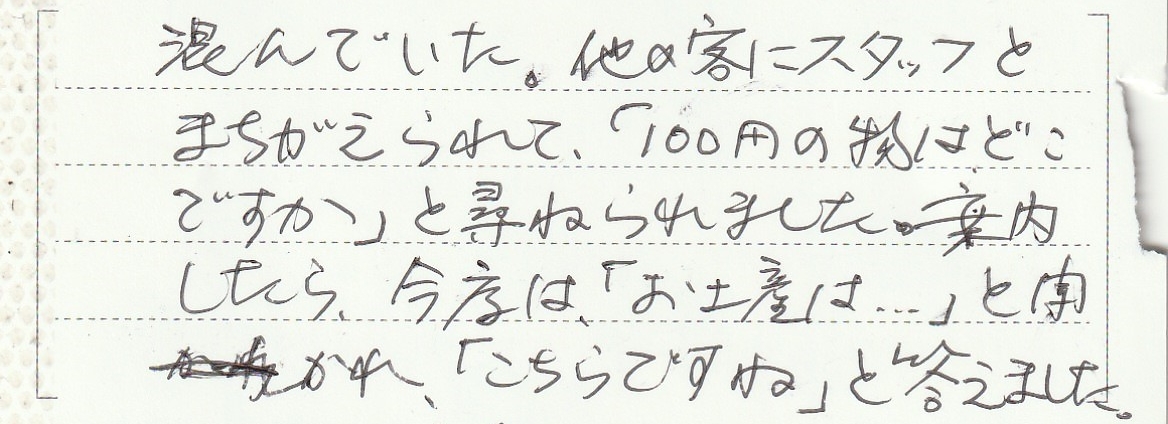 混んでいた。他の客にスタッフと
まちがえられて、「100円の物はどこ
ですか」と尋ねられました。案内
したら、今度は、「お土産は…」と聞
かれ、「こちらですね」と答えました。